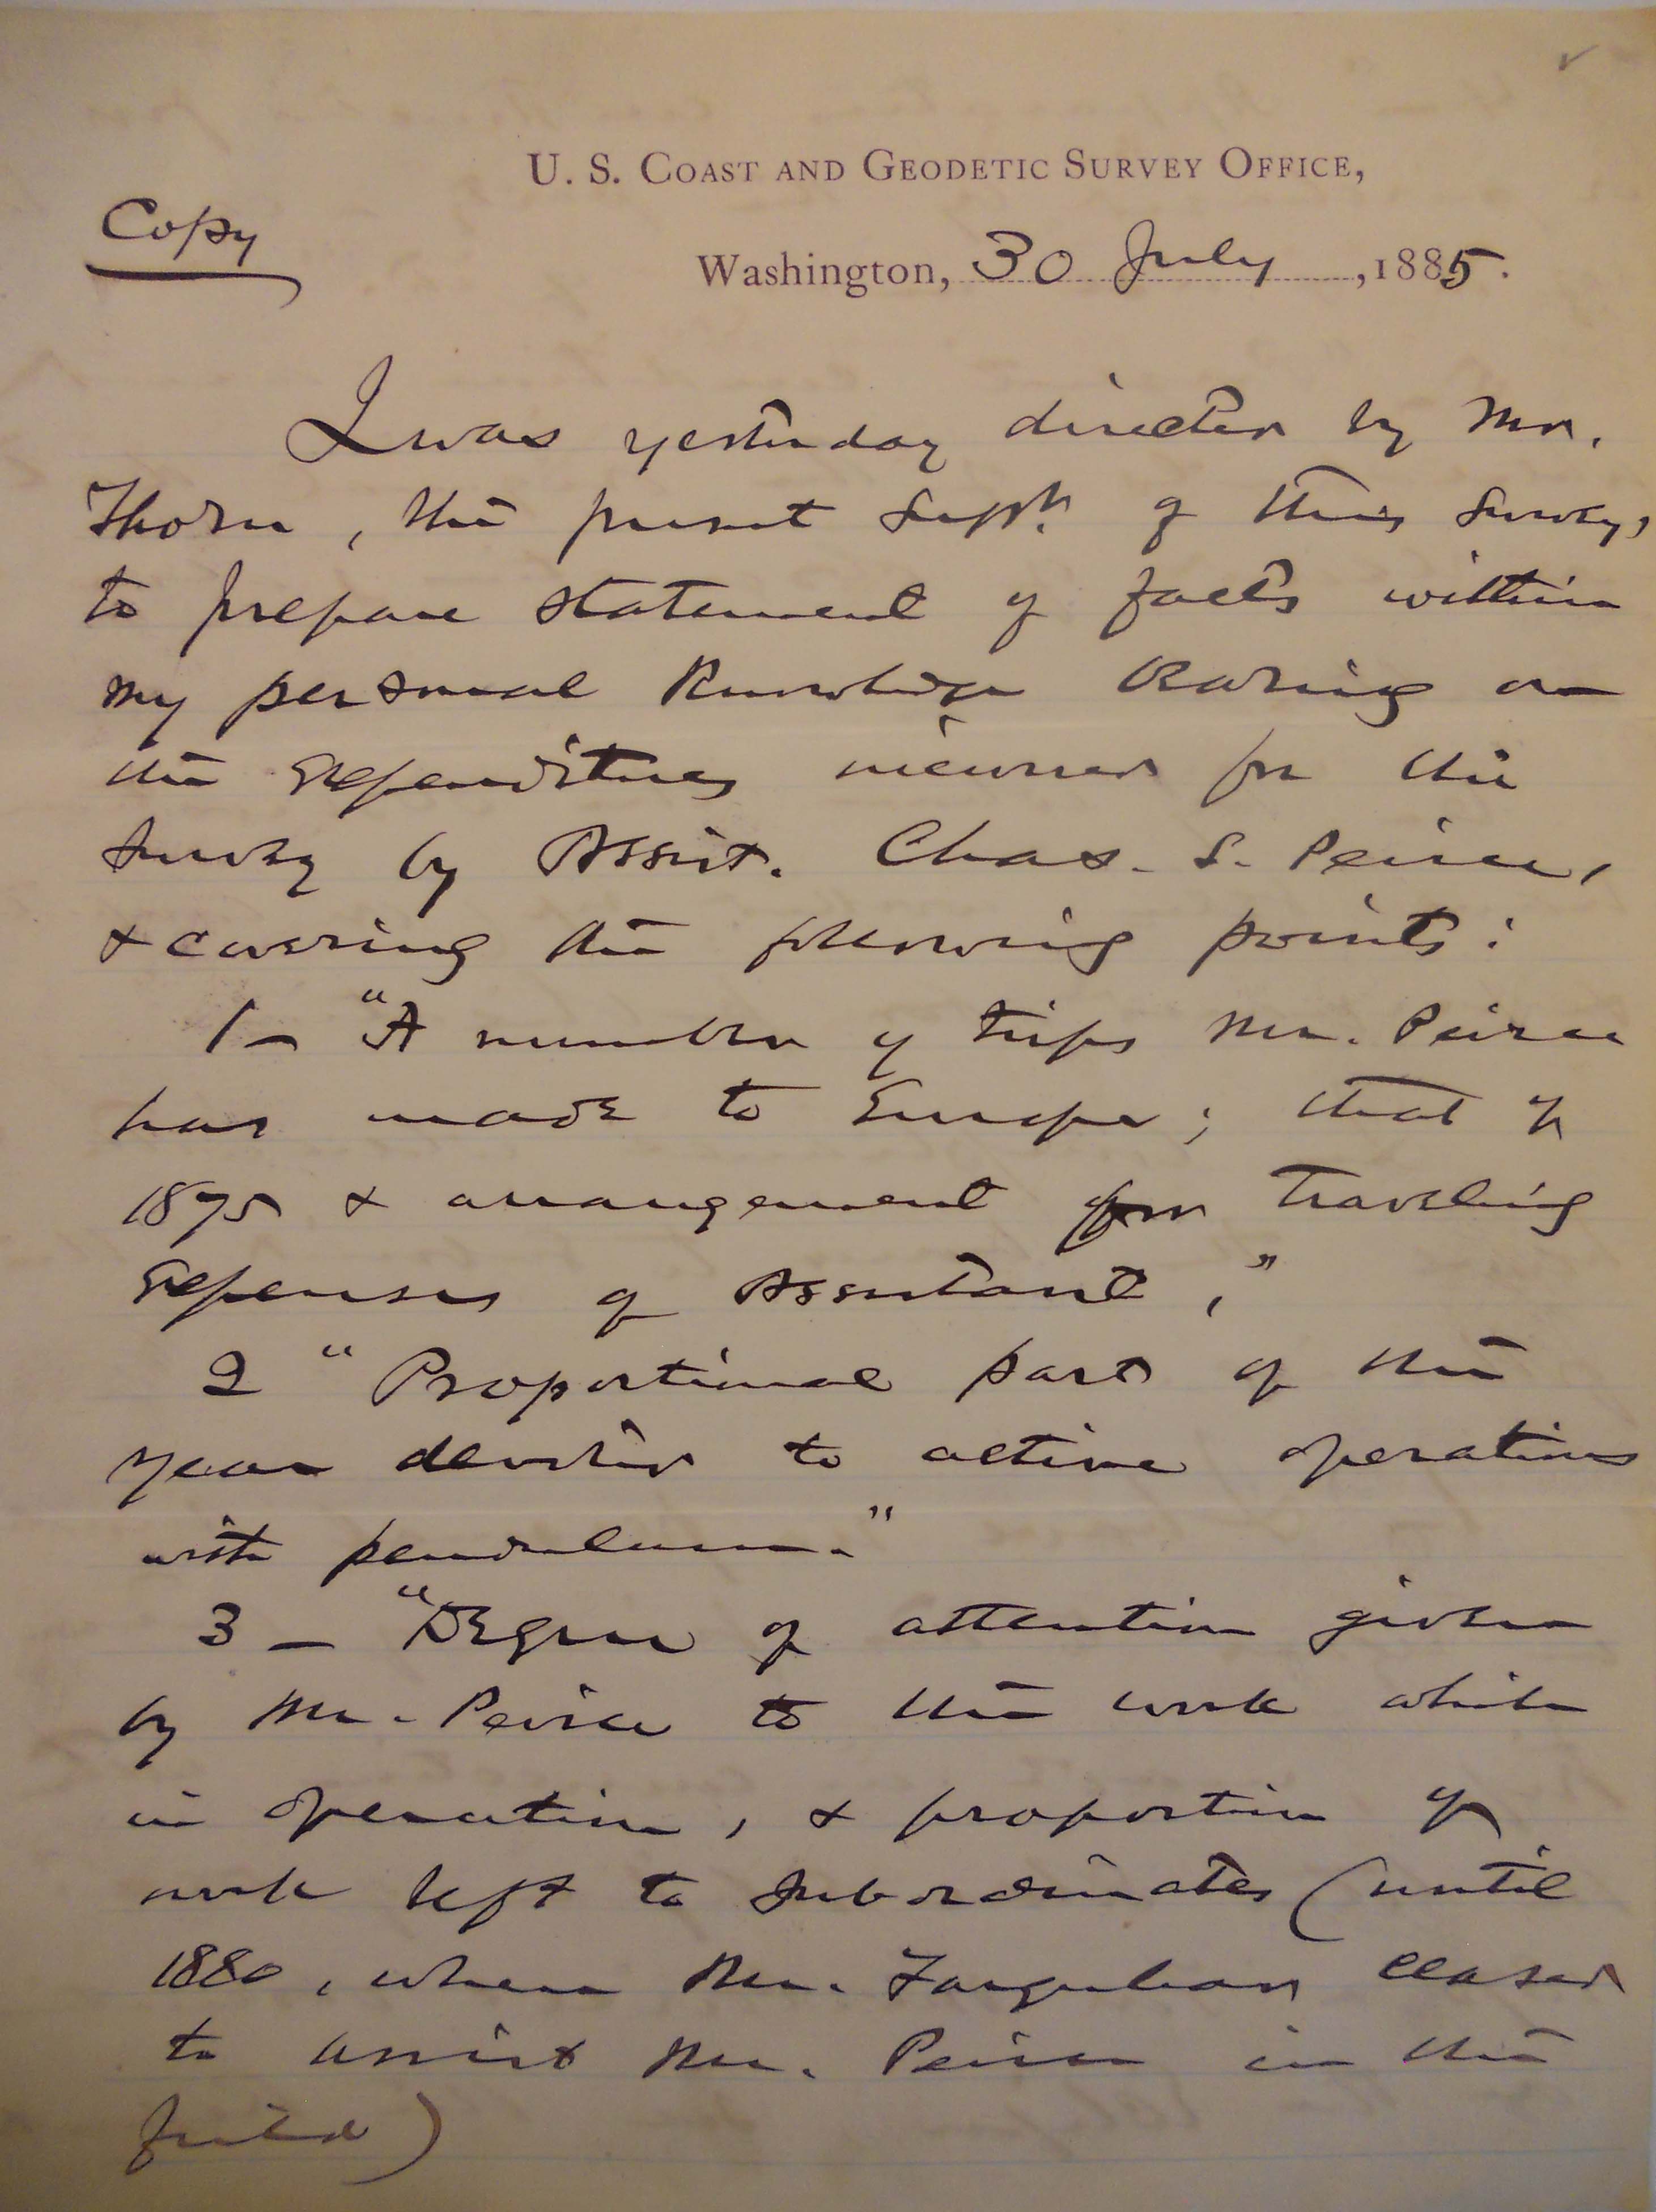 U. S. Coast and Geodetic Survey Office,
Copy
Washington, 30 July, 1885.
I was yesterday directed by Mr.
Thorn, the present Supt. of this Survey,
to prepare statement of facts within
my personal knowledge bearing on
the expenditures incurred for the
Survey by Assist. Chas. S. Peirce,
& covering the following points:
1– "A number of trips Mr. Peirce
has made to Europe; that of
1875 & arrangement for traveling
expenses of Assistant,"
2 "Proportional part of the
year devoted to active operations
with pendulum."
3 – "Degree of attention given
by Mr. Peirce to the work while
in operation, & proportion of
work left to subordinates (until
1880, when Mr. Farquhar ceased
to assist Mr. Peirce in the
field)